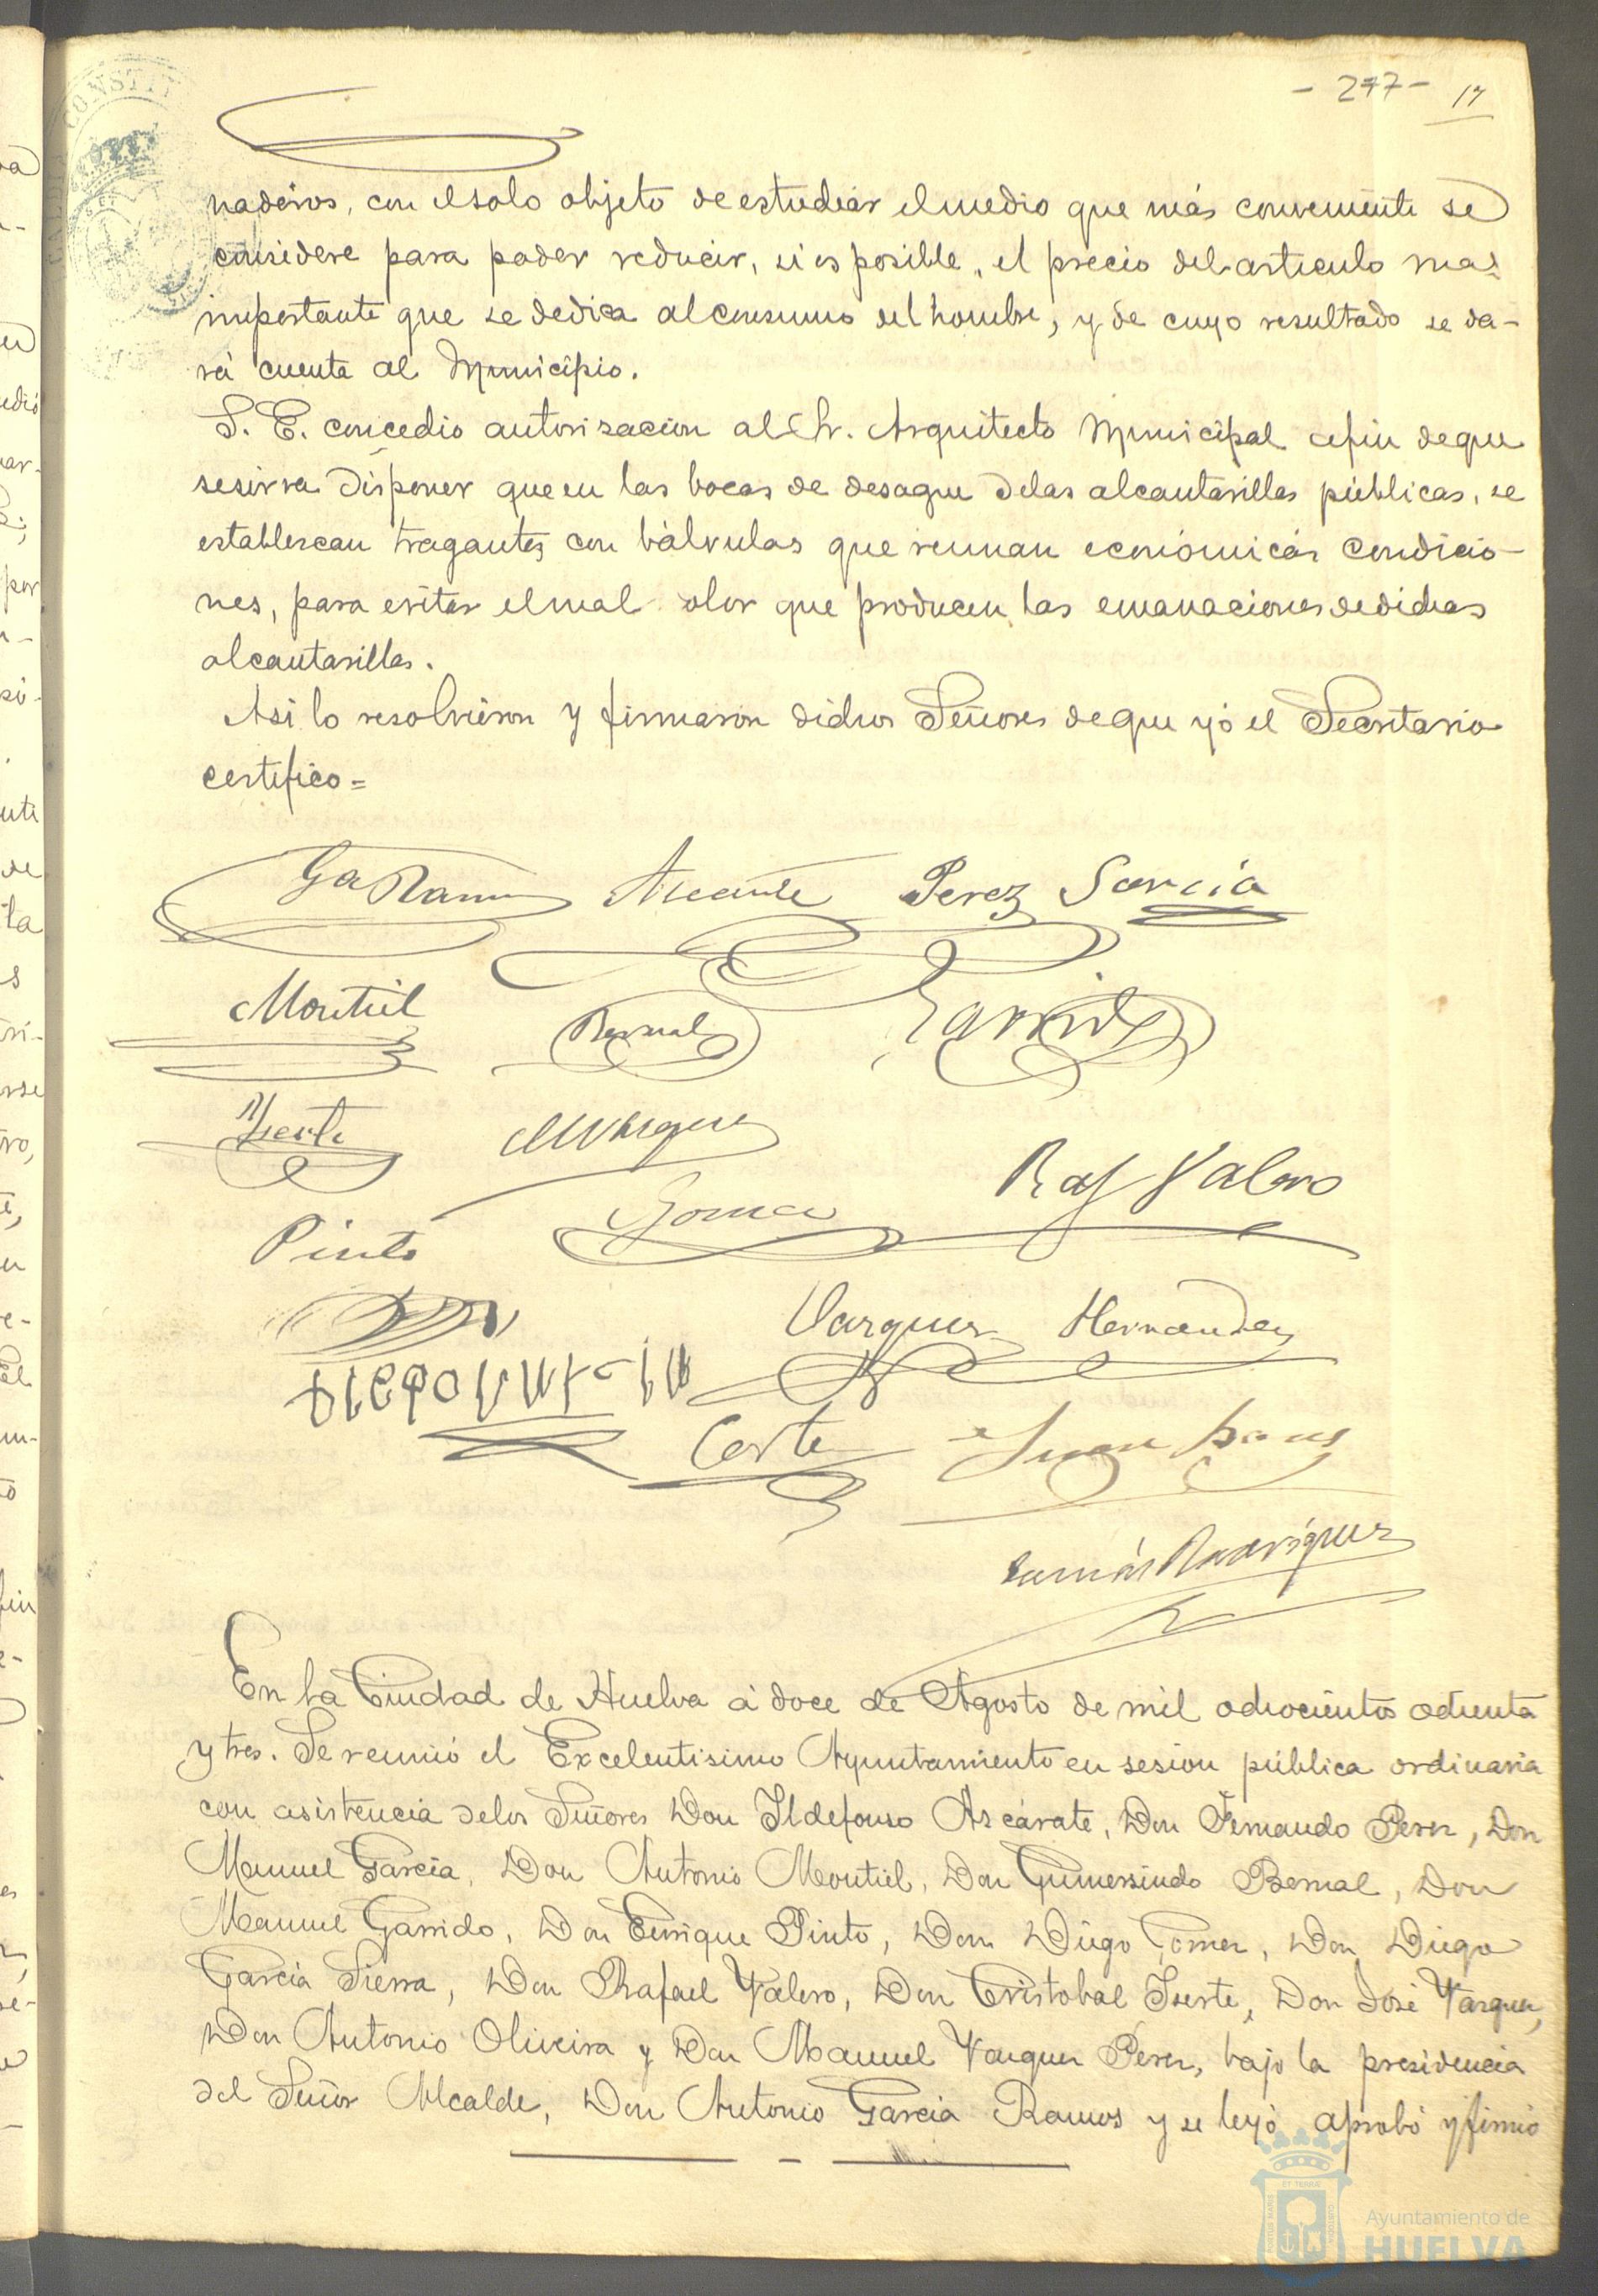 - 277 - 17
naderos, con el solo objeto de estudiar el medio que más conveniente se
considere para poder reducir, si es posible, el precio del articulo mas
importante que se dedica al consumo del hombre, y de cuyo resultado se da-
rá cuenta al Municipio.
S. E. concedio autorizacion al Sr. Arquitecto Municipal afin de que
se sirva disponer que en las bocas de desague de las alcantarillas públicas, se
establezcan tragantes con bálvulas que reunan económicas condicio-
nes, para evitar el mal olor que producen las emanaciones de dichas
alcantarillas.
Asi lo resolvieron y firmaron dichos Señores de que yó el Secretario
certifico =
Ga Ramos Ascarate Perez Garcia
Montiel Bernal Garrido
Iserte MVazquez
Raf Valero
Pinto Gomez
Vazquez Hernandez
Corte Juan
Tomás Rodriguez
En la Ciudad de Huelva á doce de Agosto de mil ochocientos ochenta
y tres. Se reunió el Excelentisimo Ayuntamiento en sesion pública ordinaria
con asistencia de los Señores Don Ildefonso Ascárate, Don Fernando Perez, Don
Manuel Garcia, Don Antonio Montiel, Don Gumersindo Bernal, Don
Manuel Garrido, Don Enrique Pinto, Don Diego Gomez, Don Diego
Garcia Sierra, Don Rafael Valero, Don Cristobal Iserte, Don José Vazquez,
Don Antonio Oliveira y Don Manuel Vazquez Perez, bajo la presidencia
del Señor Alcalde, Don Antonio Garcia Ramos y se leyó, aprobó y firmó
Ayuntamiento de
HUELVA